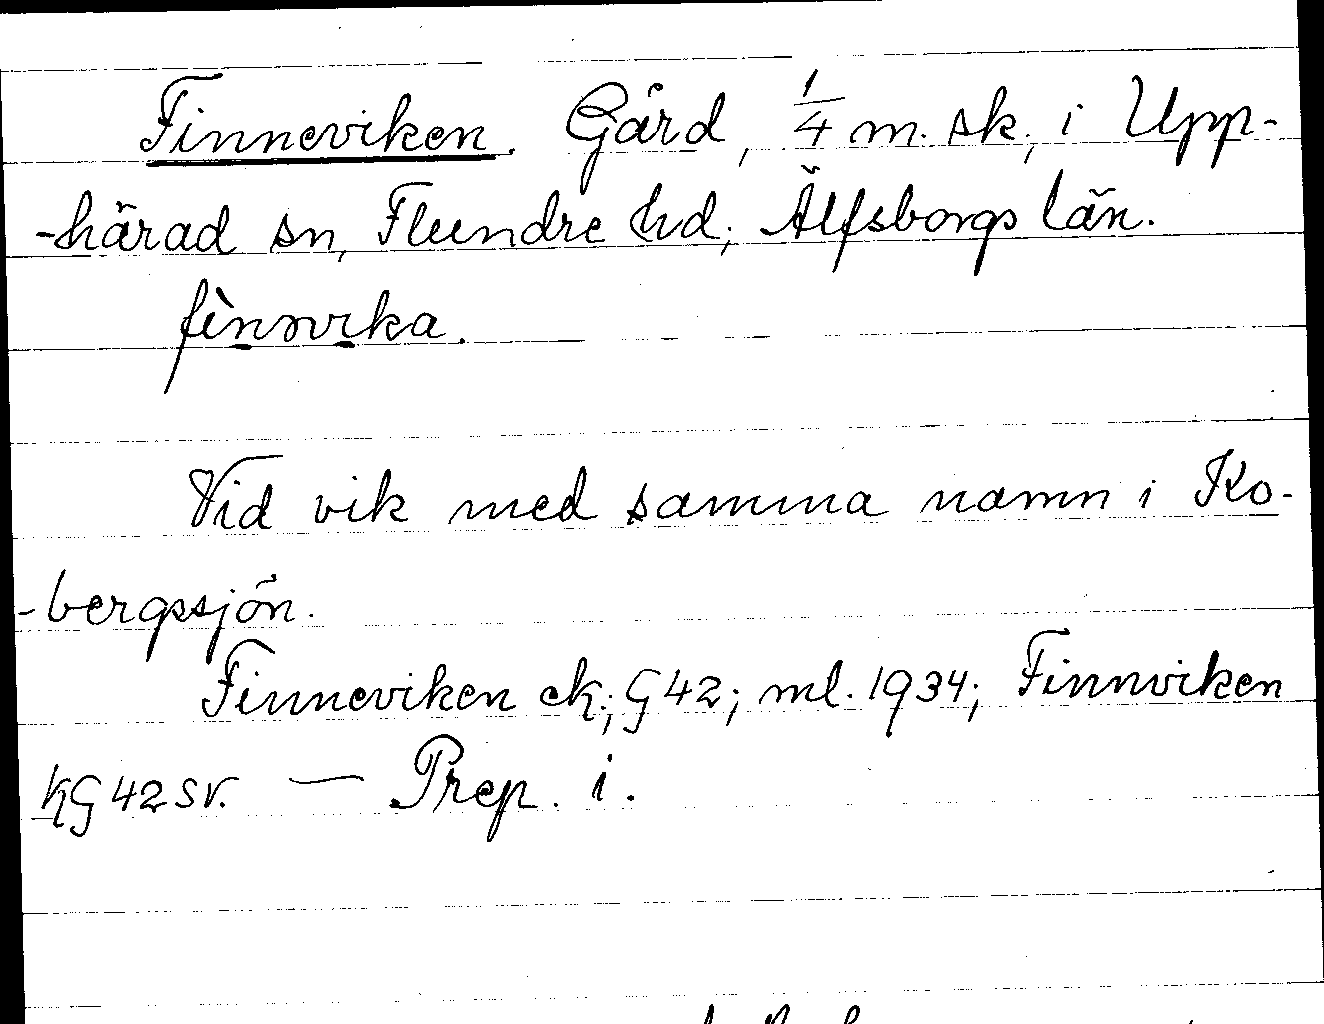 Finneviken. Gård, 1/4 m. sk., i Upp-
-härad sn, Flundre hd, Älfsborgs län.
fìnnvika.
Vid vik med samma namn i Ko-
-bergssjön.
Finneviken ek; G 42; ml. 1934; Finnviken
KG 42 SV. — Prep. i.